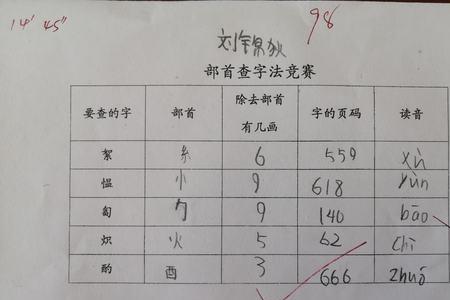 14' 45"
98
刘锦
部首查字法竞赛
要查的字 部首 除去部首有几画 字的页码 读音
絮 糸 6 559 xù
愠 忄 9 618 yùn
匐 勹 9 140 bāo
炽 火 5 62 chī
酌 酉 3 666 zhuó